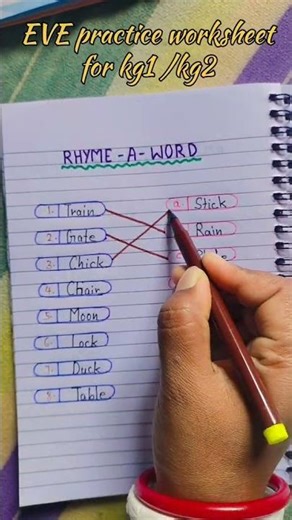 EVE practice worksheet
for kg1 /kg2
RHYME-A-WORD
1. Train
a. Stick
2. Gate
Rain
3. Chick
4. Chair
5. Moon
6. Lock
7. Duck
8. Table